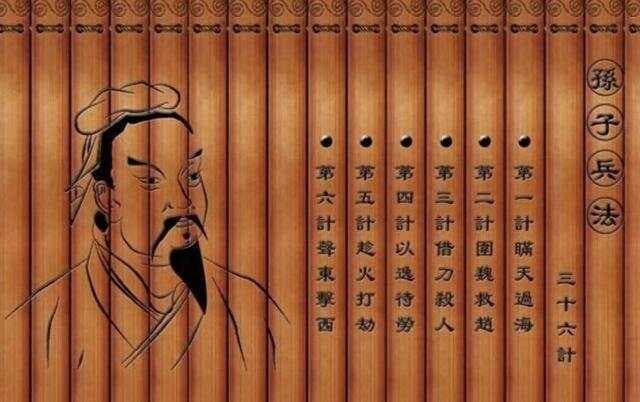 孫子兵法
三十六計
第一計瞞天過海
第二計圍魏救趙
第三計借刀殺人
第四計以逸待勞
第五計趁火打劫
第六計聲東擊西